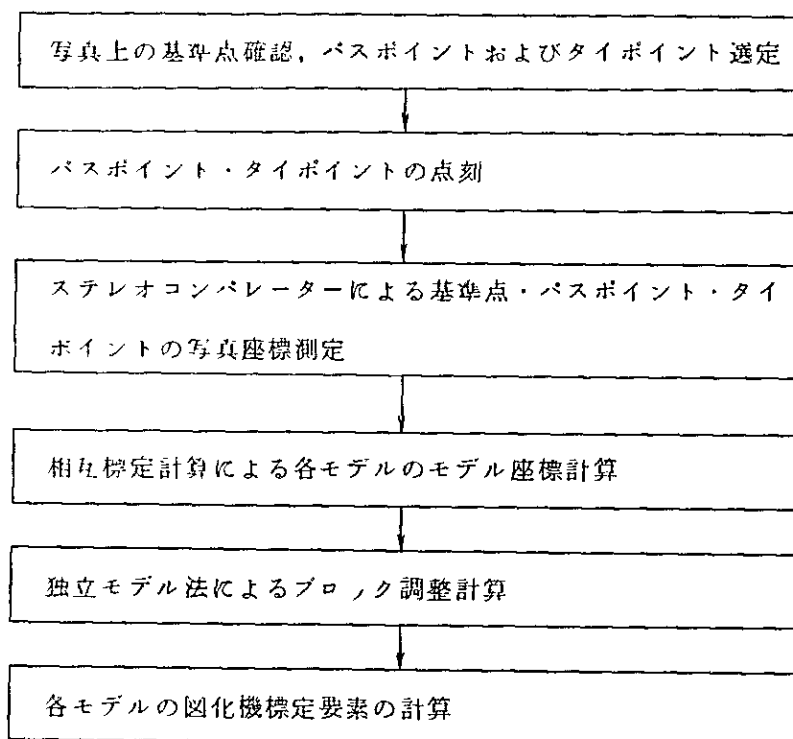 写真上の基準点確認，パスポイントおよびタイポイント選定
パスポイント・タイポイントの点刻
ステレオコンパレーターによる基準点・パスポイント・タイ
ポイントの写真座標測定
相互標定計算による各モデルのモデル座標計算
独立モデル法によるブロック調整計算
各モデルの図化機標定要素の計算